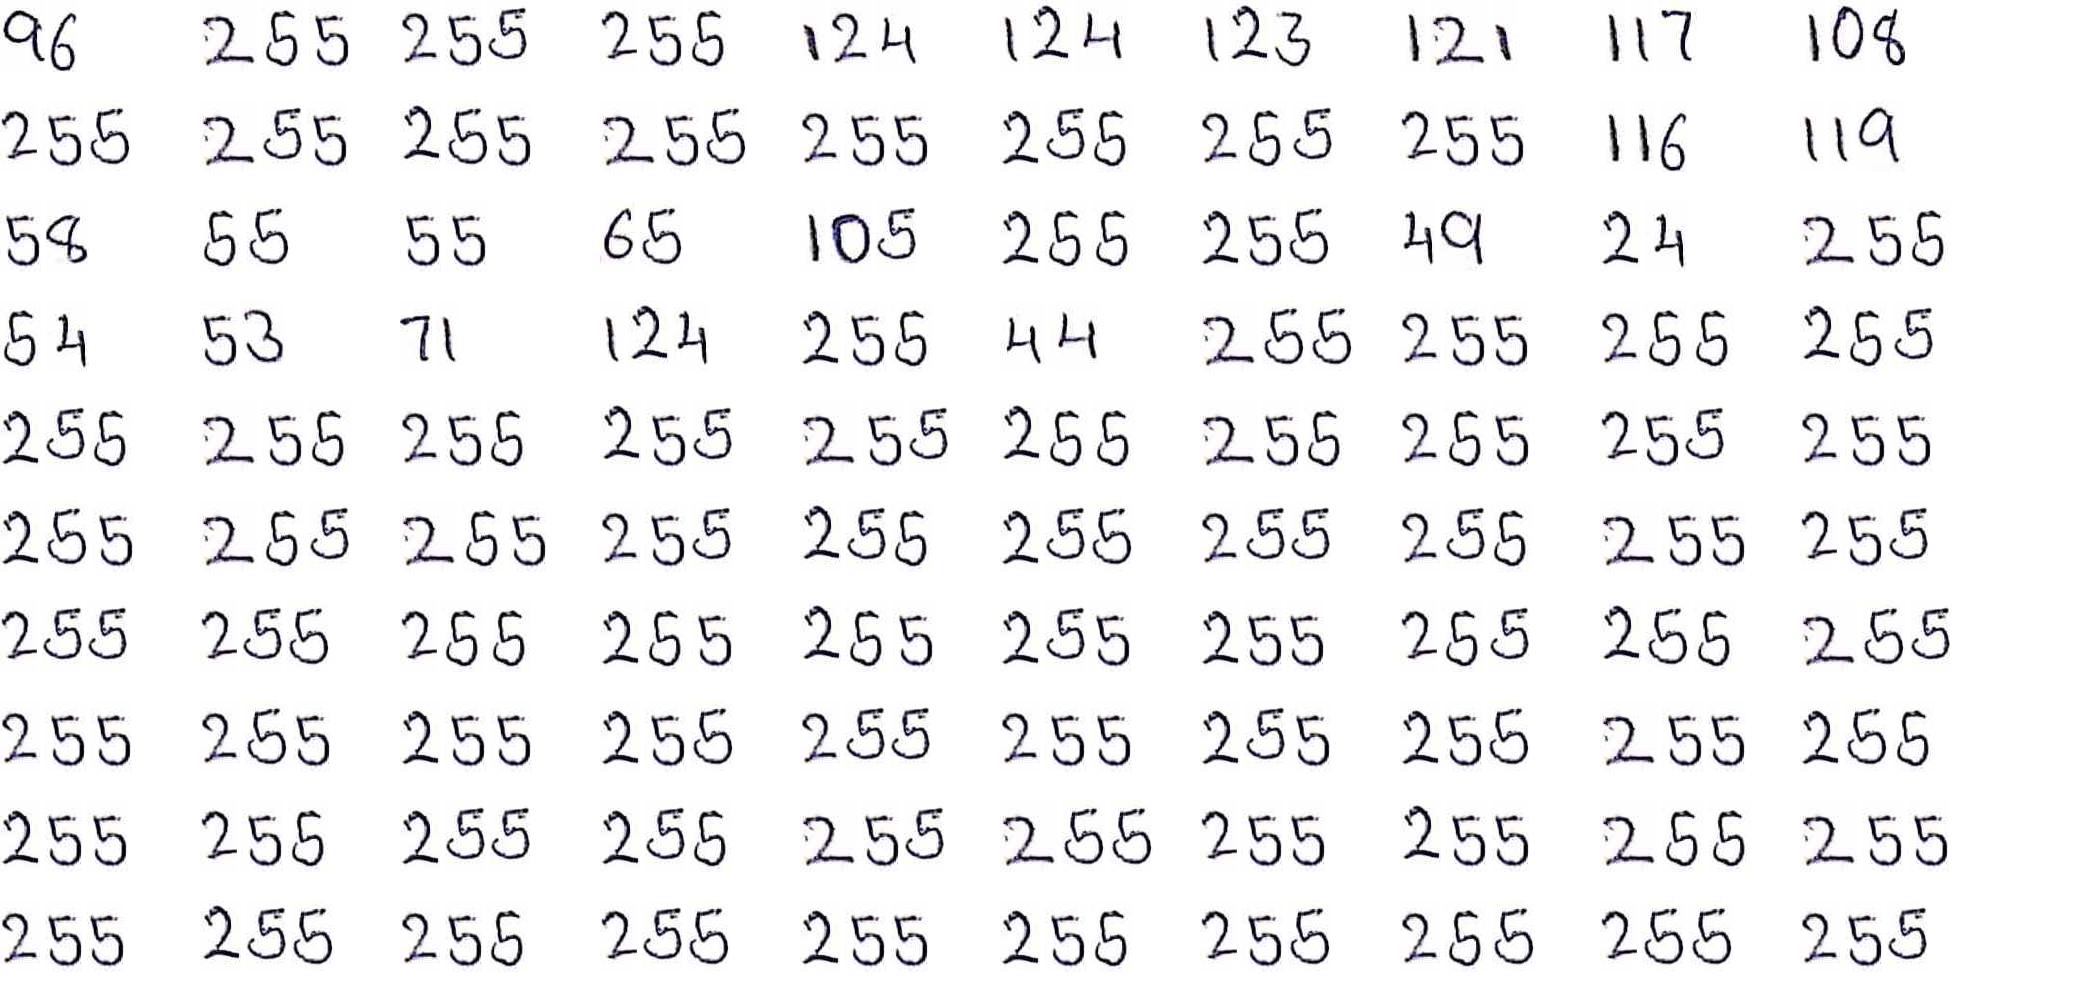 96 255 255 255 124 124 123 121 117 108
255 255 255 255 255 255 255 255 116 119
58 55 55 65 105 255 255 49 24 255
54 53 71 124 255 44 255 255 255 255
255 255 255 255 255 255 255 255 255 255
255 255 255 255 255 255 255 255 255 255
255 255 255 255 255 255 255 255 255 255
255 255 255 255 255 255 255 255 255 255
255 255 255 255 255 255 255 255 255 255
255 255 255 255 255 255 255 255 255 255